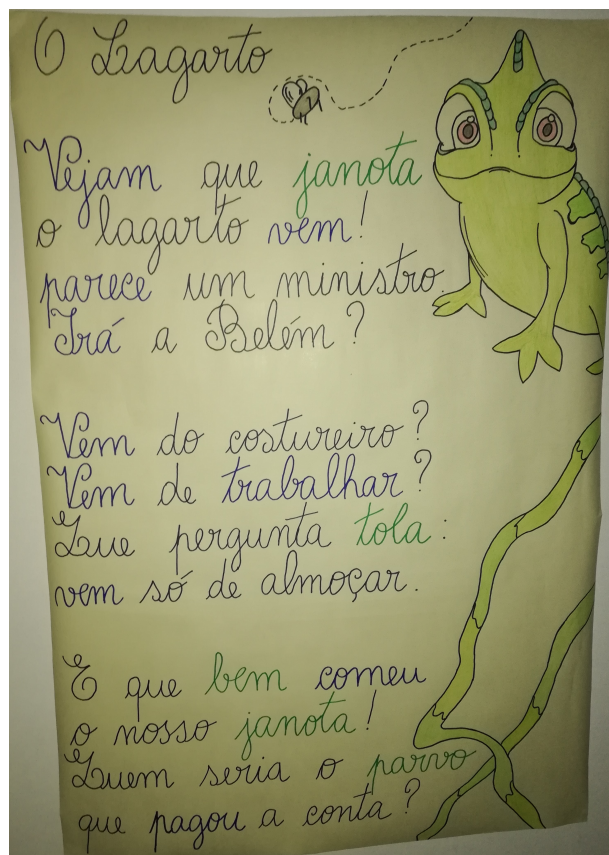 O Lagarto
Vejam que janota
o lagarto vem!
parece um ministro.
Irá a Belém?
Vem do costureiro?
Vem de trabalhar?
Que pergunta tola:
vem só de almoçar.
E que bem comeu
o nosso janota!
Quem seria o parvo
que pagou a conta?